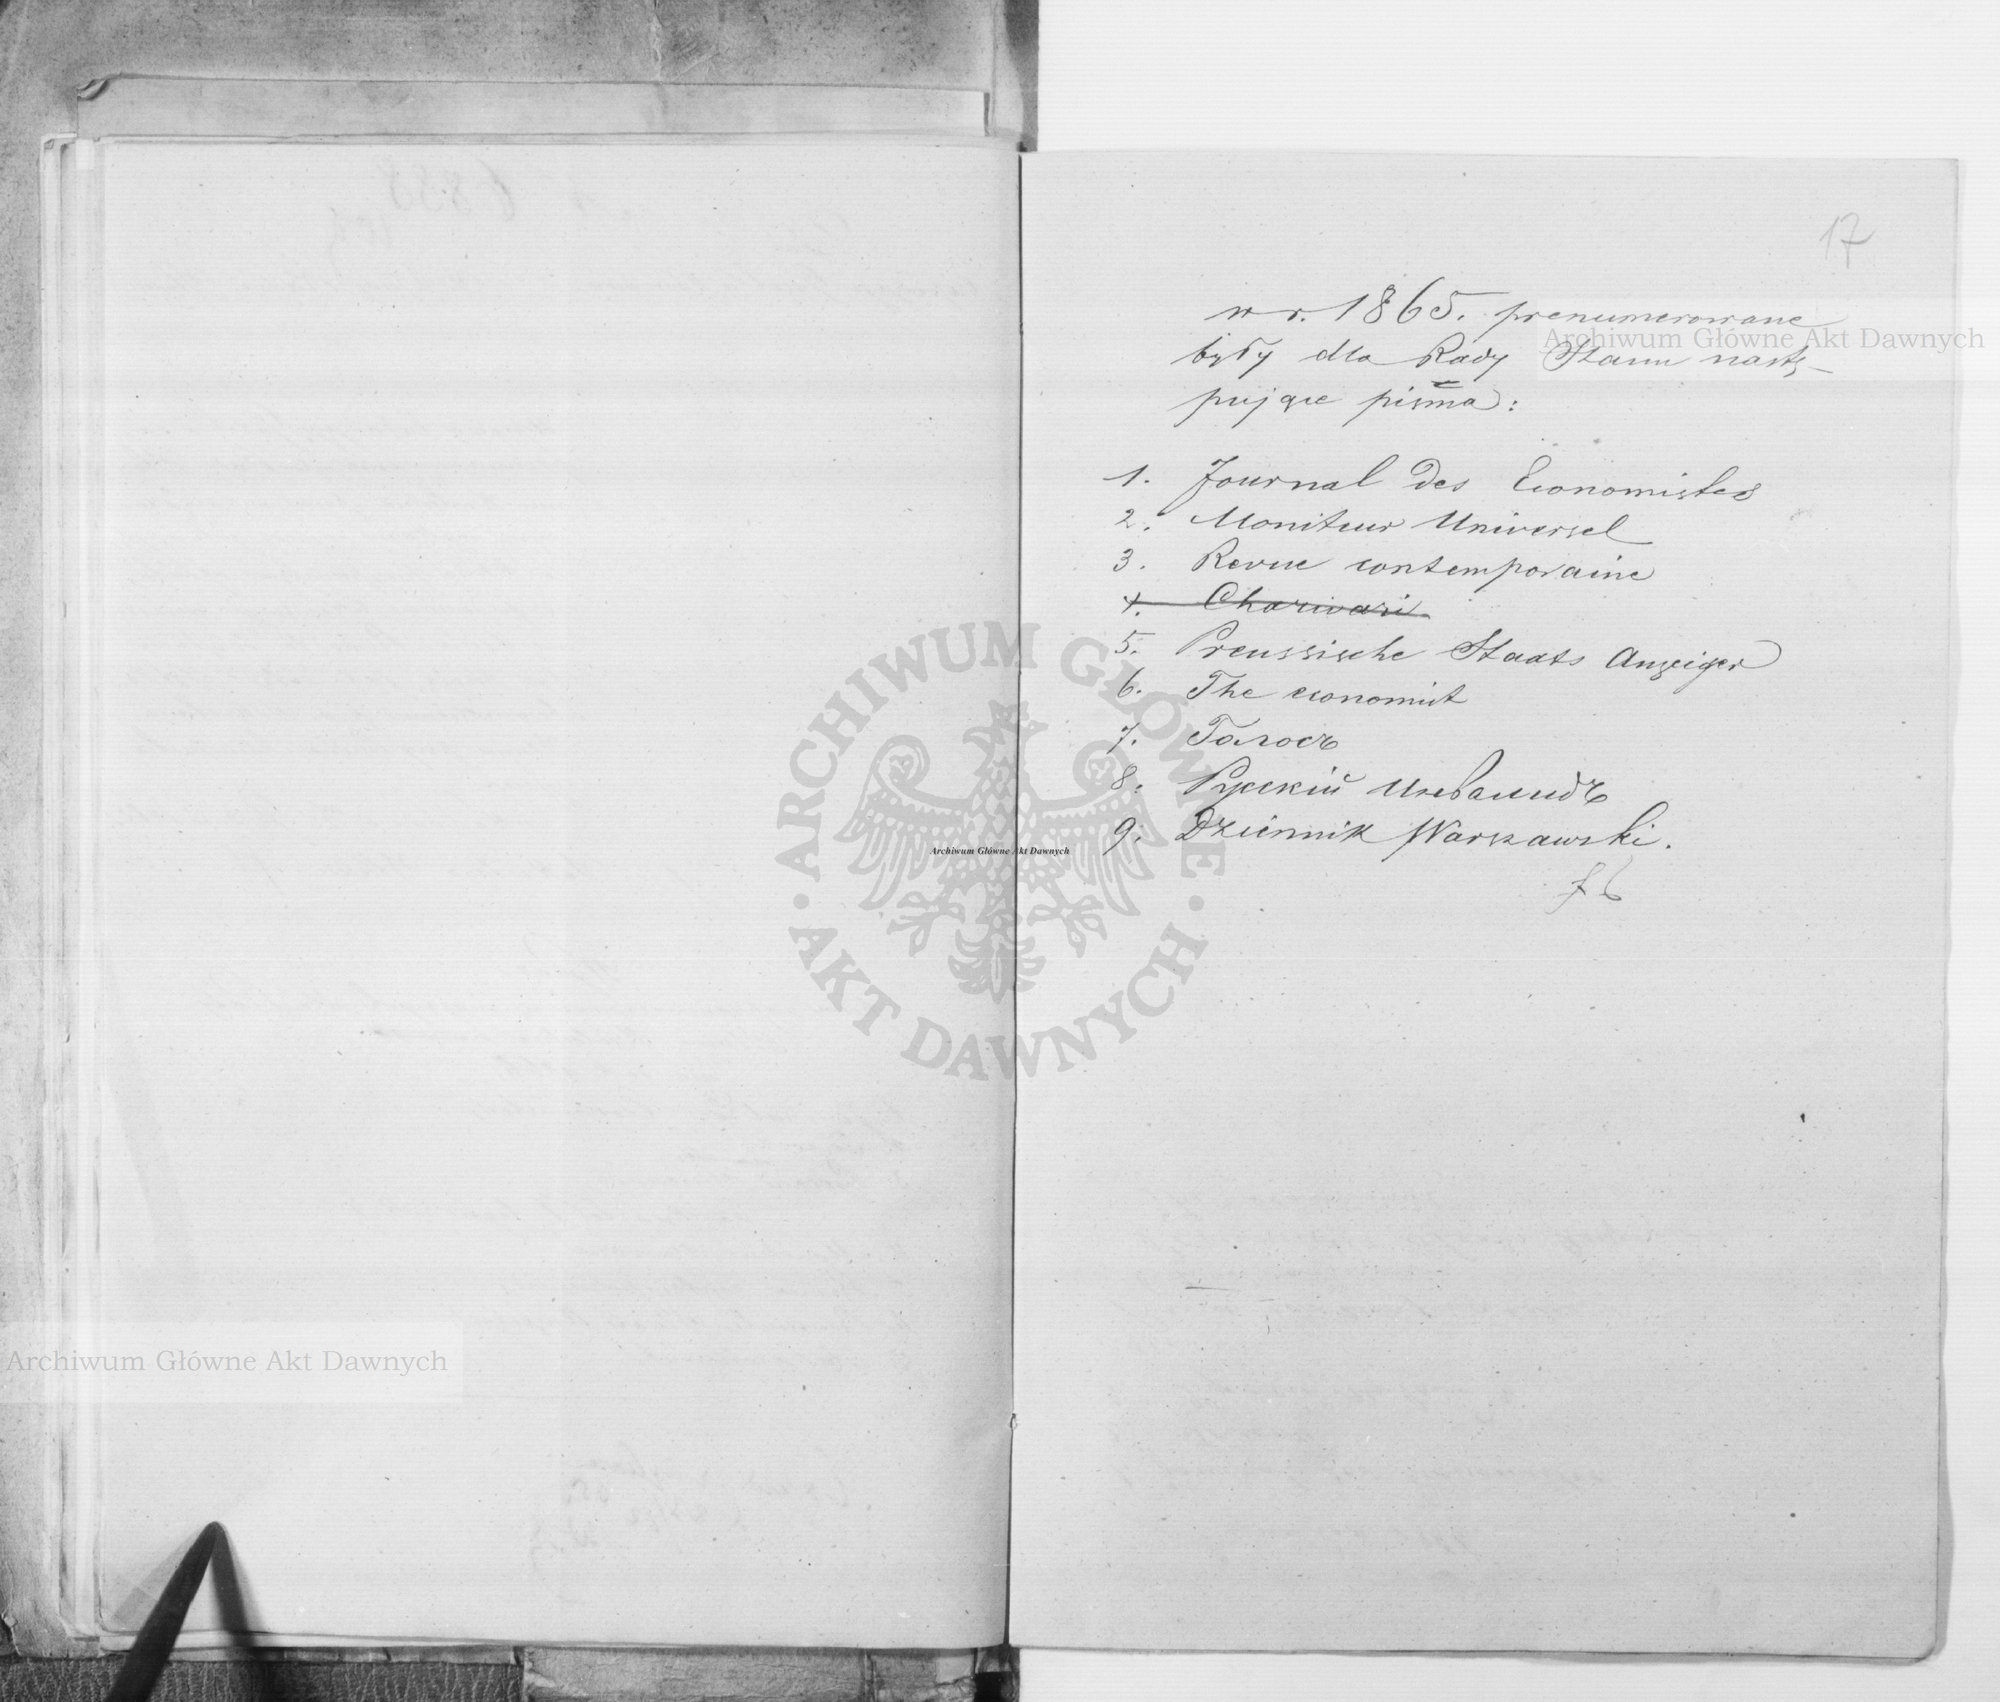 17
w r. 1865. prenumerowane
były dla Rady Stanu nastę-
pujące pisma:
1. Journal des Economistes
2. Moniteur Universel
3. Revue contemporaine
4. Charivari
5. Preussische Staats Anzeiger
6. The economist
7. Голосъ
8. Русскій Инвалидъ
9. Dziennik Warszawski.
Archiwum Główne Akt Dawnych
ARCHIWUM GŁÓWNE · AKT DAWNYCH ·
Archiwum Główne Akt Dawnych
Archiwum Główne Akt Dawnych